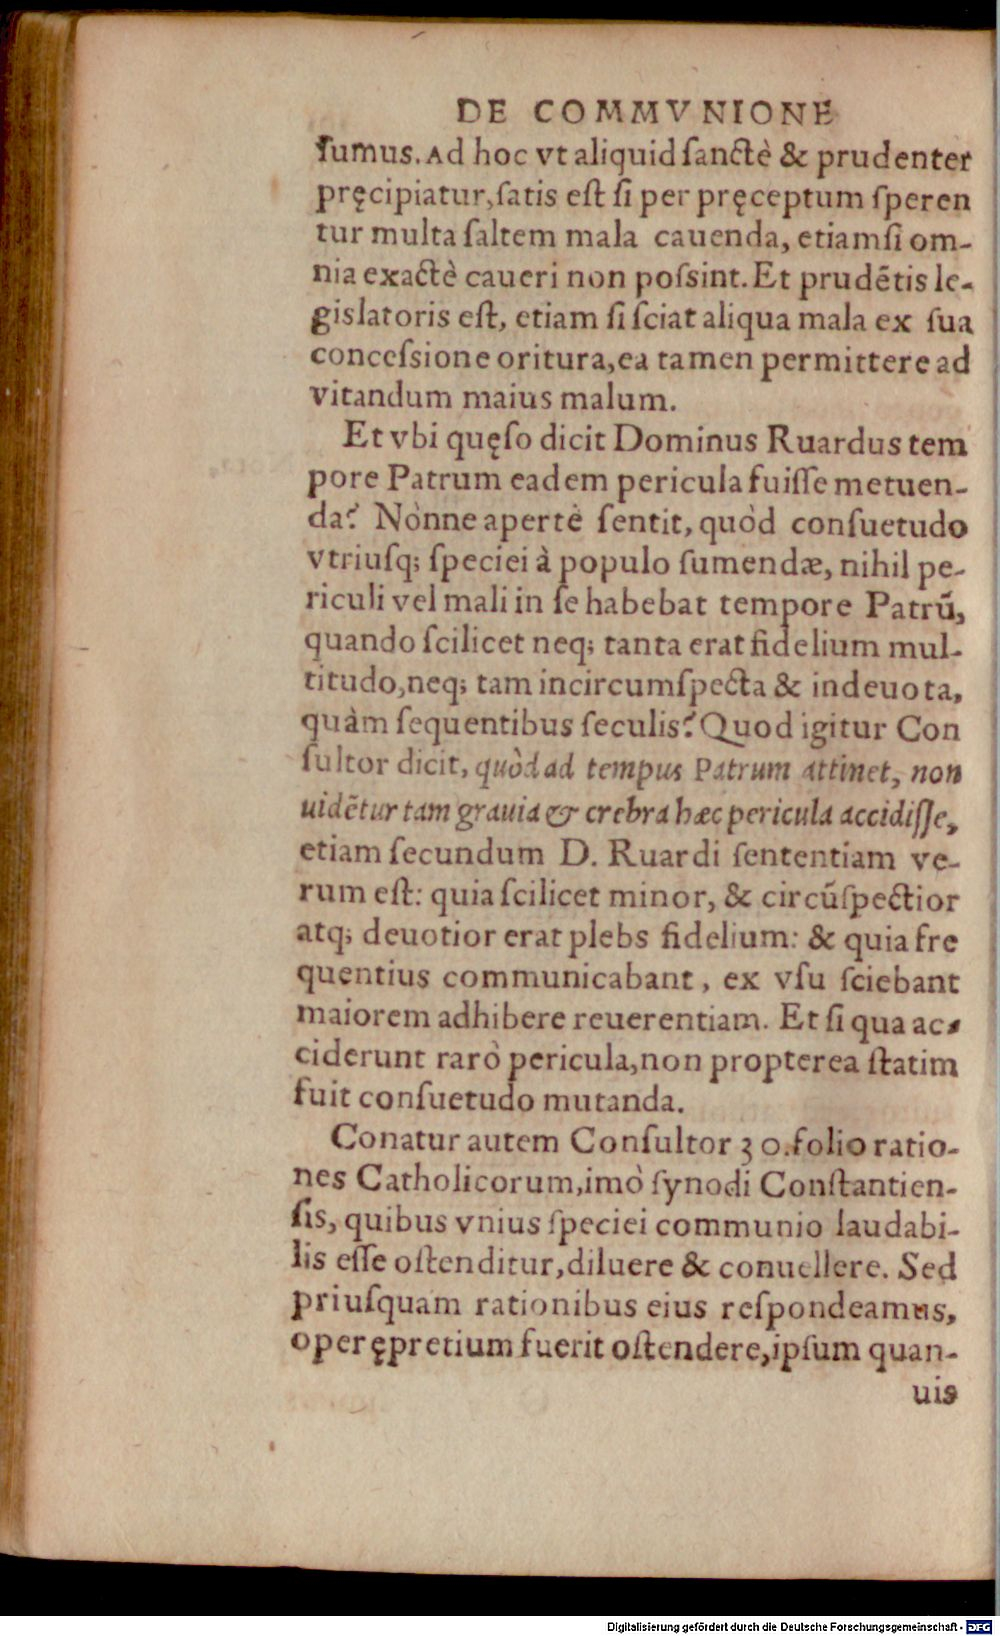 DE COMMVNIONE
ſumus. Ad hoc vt aliquid ſanctè & prudenter
pręcipiatur, ſatis eſt ſi per pręceptum ſperen
tur multa ſaltem mala cauenda, etiamſi om-
nia exactè caueri non poſsint. Et prudẽtis le-
gislatoris eſt, etiam ſi ſciat aliqua mala ex ſua
conceſsione oritura, ea tamen permittere ad
vitandum maius malum.
Et vbi quęſo dicit Dominus Ruardus tem
pore Patrum eadem pericula fuiſſe metuen-
da? Nònne apertè ſentit, quòd conſuetudo
vtriuſq; ſpeciei à populo ſumendæ, nihil pe-
riculi vel mali in ſe habebat tempore Patrũ,
quando ſcilicet neq; tanta erat fidelium mul-
titudo, neq; tam incircumſpecta & indeuota,
quàm ſequentibus ſeculis? Quod igitur Con
ſultor dicit, quòd ad tempus Patrum attinet, non
uidẽtur tam grauia & crebra hæc pericula accidiſſe,
etiam ſecundum D. Ruardi ſententiam ve-
rum eſt: quia ſcilicet minor, & circũſpectior
atq; deuotior erat plebs fidelium: & quia fre
quentius communicabant, ex vſu ſciebant
maiorem adhibere reuerentiam. Et ſi qua ac-
ciderunt rarò pericula, non propterea ſtatim
fuit conſuetudo mutanda.
Conatur autem Conſultor 30. folio ratio-
nes Catholicorum, imò ſynodi Conſtantien-
ſis, quibus vnius ſpeciei communio laudabi-
lis eſſe oſtenditur, diluere & conuellere. Sed
priuſquam rationibus eius reſpondeamus,
operępretium fuerit oſtendere, ipſum quan-
uis
Digitalisierung gefördert durch die Deutsche Forschungsgemeinschaft - DFG